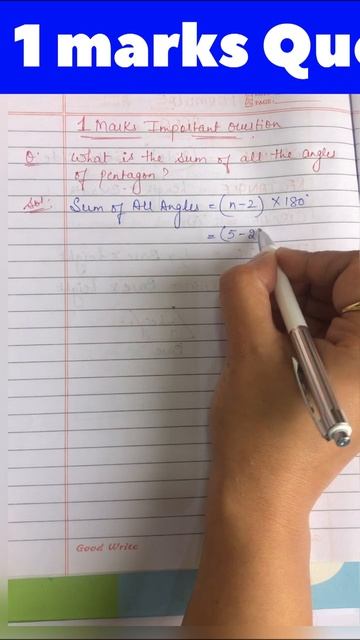 1 marks Que
1 Marks Important Question
Q: What is the sum of all the angles
of Pentagon?
Sol: Sum of All Angles = (n-2) × 180°
= (5-2)
Good Write